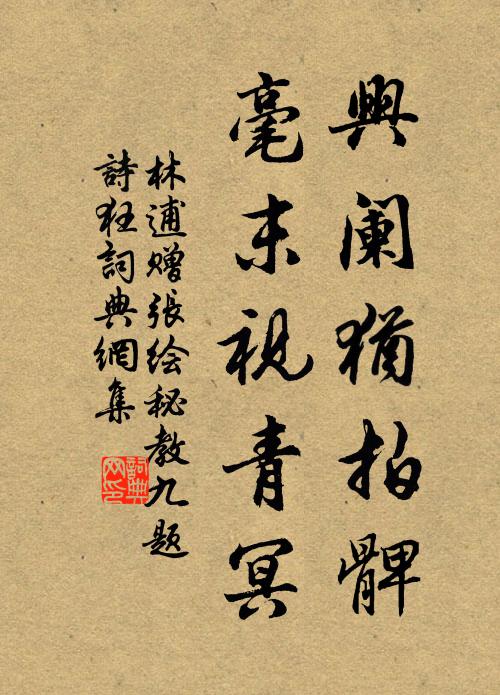 興阑猶拍髀
毫末視青冥
林逋赠張绘秘教九题
詩狂詞典網集
詞典
网印